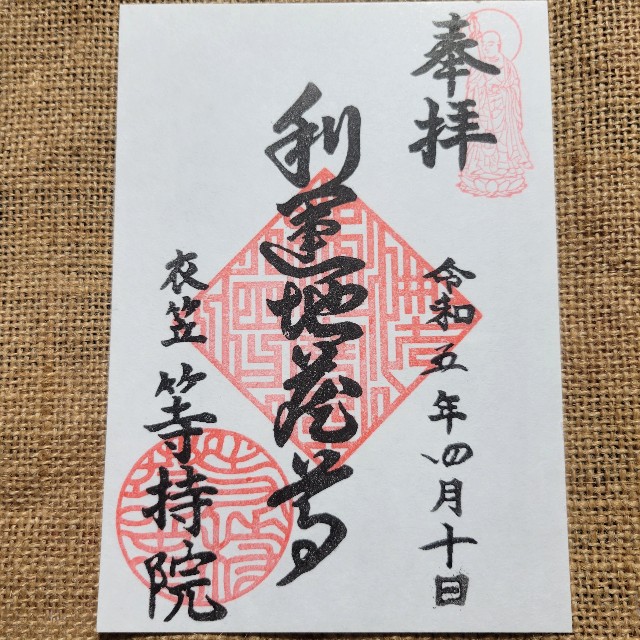 奉拝
令和五年四月十日
利運地蔵尊
衣笠 等持院